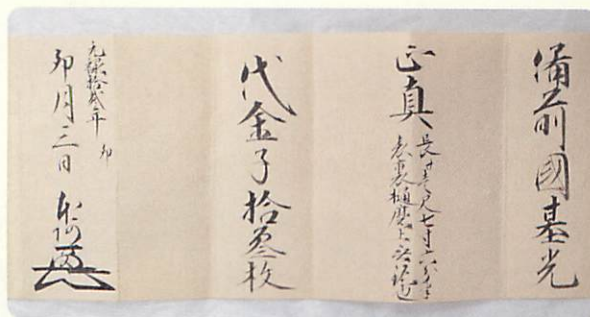 備前國基光
正真 長サ壱尺七寸六分半
表裏樋
代金子拾参枚
元禄拾弐年 卯
卯月三日 本阿